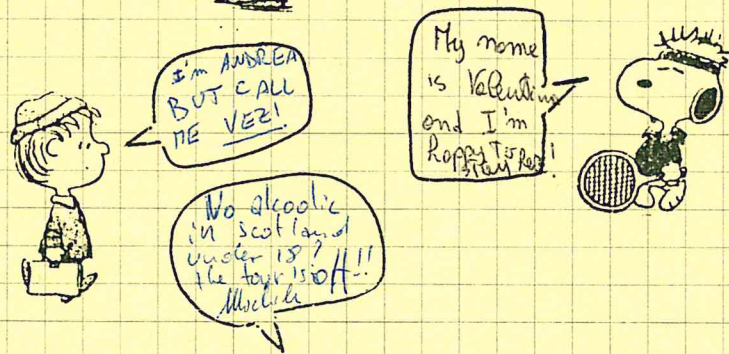 I'm ANDREA
BUT CALL
ME VEZ!
My name
is Valentina
and I'm
happy to
stay here!
No alcoolic
in scotland
under 18?
the tour is off!!